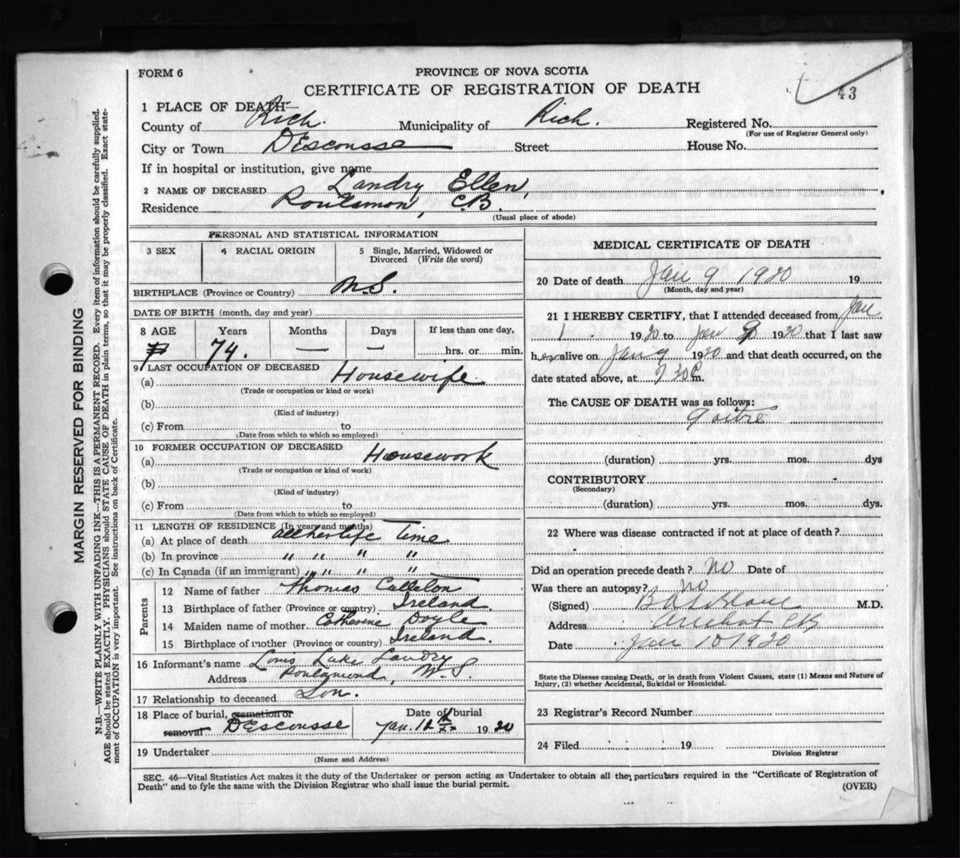 FORM 6
PROVINCE OF NOVA SCOTIA
CERTIFICATE OF REGISTRATION OF DEATH
43
1 PLACE OF DEATH—
County of Rich. Municipality of Rich. Registered No.
(For use of Registrar General only)
City or Town DEscousse Street House No.
If in hospital or institution, give name
2 NAME OF DECEASED Landry Ellen,
Residence Poulamon, C.B.
(Usual place of abode)
PERSONAL AND STATISTICAL INFORMATION
3 SEX 4 RACIAL ORIGIN 5 Single, Married, Widowed or Divorced (Write the word)
BIRTHPLACE (Province or Country) N.S.
DATE OF BIRTH (month, day and year)
8 AGE Years Months Days If less than one day,
74. — — hrs. or min.
9 LAST OCCUPATION OF DECEASED Housewife.
(a)
(Trade or occupation or kind or work)
(b)
(Kind of industry)
(c) From to
(Date from which to which so employed)
10 FORMER OCCUPATION OF DECEASED
(a) Housework
(Trade or occupation or kind of work)
(b)
(Kind of industry)
(c) From to
(Date from which to which so employed)
11 LENGTH OF RESIDENCE (In years and months)
(a) At place of death all her life Time
(b) In province " " " "
(c) In Canada (if an immigrant) " " " "
Parents
12 Name of father Thomas Culleton
13 Birthplace of father (Province or country) Ireland.
14 Maiden name of mother. Catherine Doyle
15 Birthplace of mother (Province or country) Ireland.
16 Informant's name Louis Luke Landry
Address Poulamond, N.S.
17 Relationship to deceased Son.
18 Place of burial, cremation or removal DEscousse
Date of burial
Jan. 12th 1920
19 Undertaker
(Name and Address)
MEDICAL CERTIFICATE OF DEATH
20 Date of death Jan 9 1920 19
(Month, day and year)
21 I HEREBY CERTIFY, that I attended deceased from Jan
1 1920 to Jan 9 1920 that I last saw
her alive on Jan 9 1920 and that death occurred, on the
date stated above, at 9 30 P m.
The CAUSE OF DEATH was as follows:
goitre
(duration) yrs. mos. dys
CONTRIBUTORY
(Secondary)
(duration) yrs. mos. dys.
22 Where was disease contracted if not at place of death?
Did an operation precede death? No Date of
Was there an autopsy? No
(Signed) M.D.
Address Arichat CB
Date Jan 10 1920
State the Disease causing Death, or in death from Violent Causes, state (1) Means and Nature of
Injury, (2) whether Accidental, Suicidal or Homicidal.
23 Registrar's Record Number
24 Filed 19
Division Registrar
SEC. 46—Vital Statistics Act makes it the duty of the Undertaker or person acting as Undertaker to obtain all the particulars required in the "Certificate of Registration of
Death" and to fyle the same with the Division Registrar who shall issue the burial permit. (OVER)
MARGIN RESERVED FOR BINDING
N.B.—WRITE PLAINLY WITH UNFADING INK—THIS IS A PERMANENT RECORD. Every item of information should be carefully supplied.
AGE should be stated EXACTLY. PHYSICIANS should STATE CAUSE OF DEATH in plain terms, so that it may be properly classified. Exact state-
ment of OCCUPATION is very important. See instructions on back of Certificate.